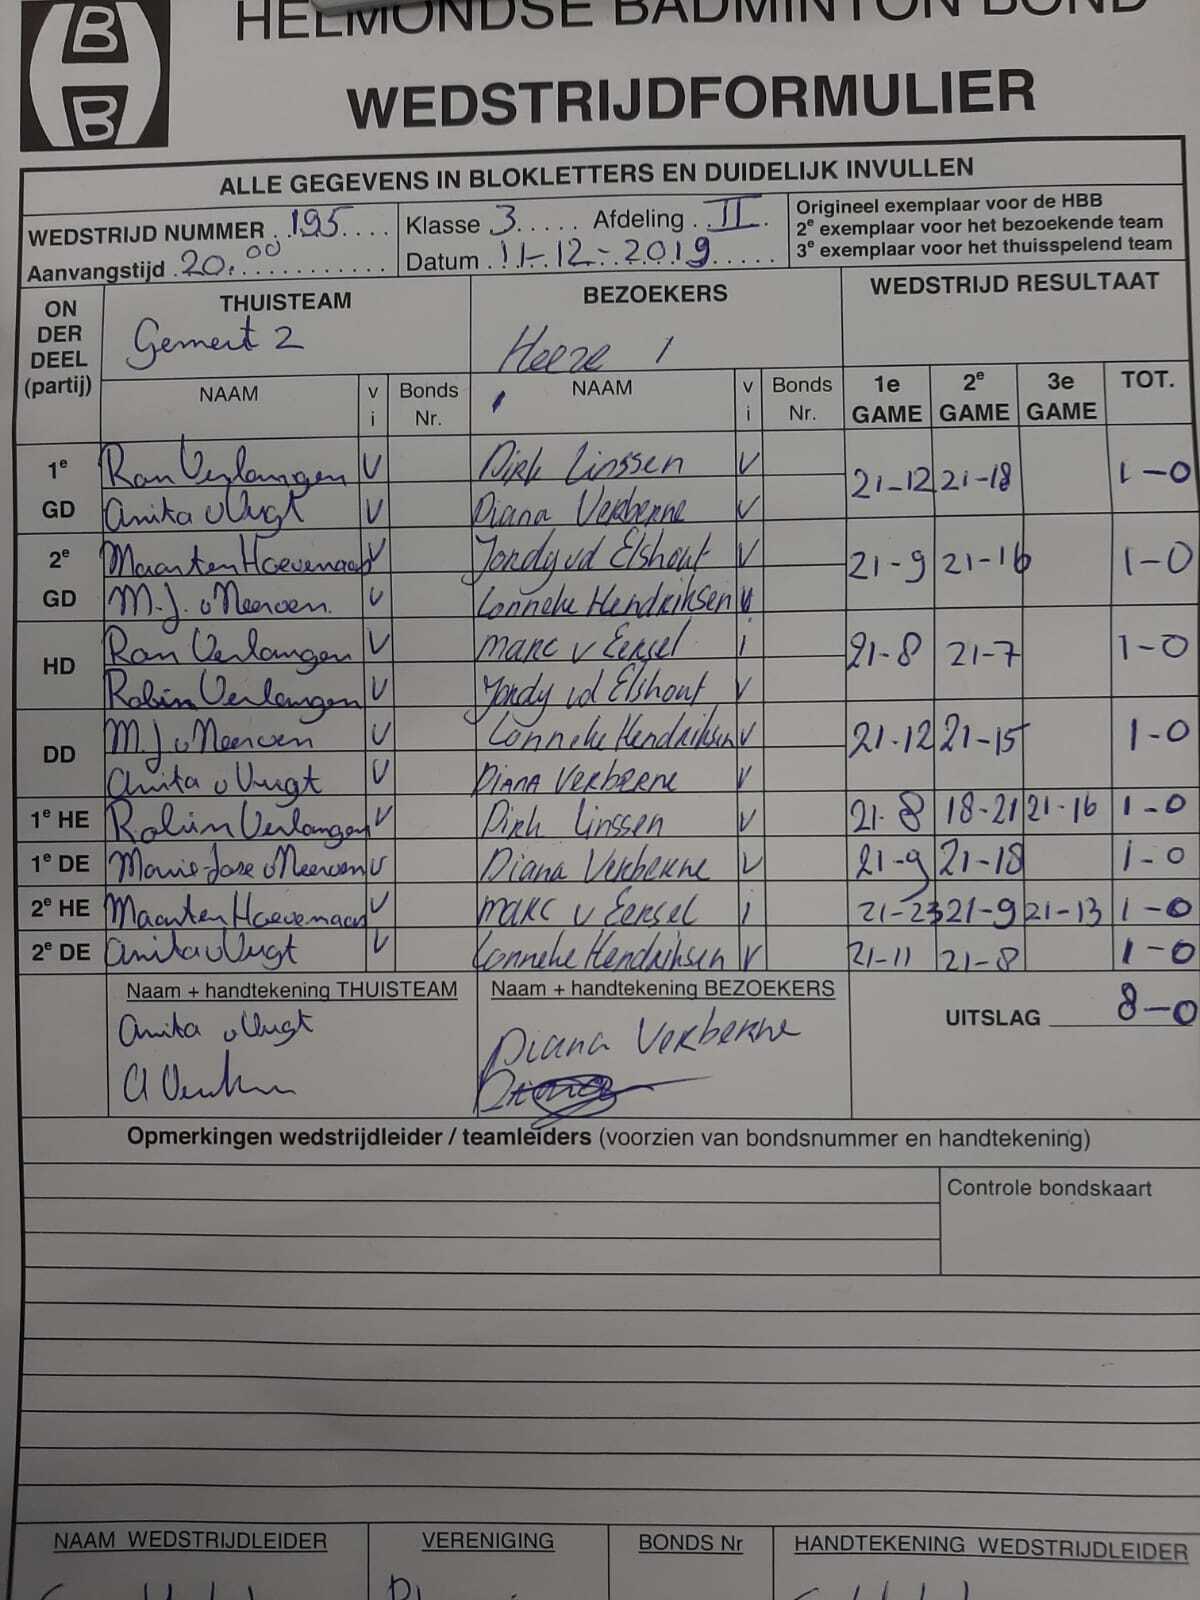 HELMONDSE BADMINTON BOND
WEDSTRIJDFORMULIER
ALLE GEGEVENS IN BLOKLETTERS EN DUIDELIJK INVULLEN
WEDSTRIJD NUMMER 195 Klasse 3 Afdeling II
Aanvangstijd 20.00 Datum 11-12-2019
Origineel exemplaar voor de HBB
2e exemplaar voor het bezoekende team
3e exemplaar voor het thuisspelend team
ON DER DEEL (partij) THUISTEAM BEZOEKERS WEDSTRIJD RESULTAAT
Gemert 2 Heeze 1
NAAM v i Bonds Nr. NAAM v i Bonds Nr. 1e GAME 2e GAME 3e GAME TOT.
1e GD Ran Verlangen v Dirk Linssen v 21-12 21-18 1-0
Anita v Vugt v Diana Verberne v
2e GD Maarten Hoevenaars v Jordy vd Elshout v 21-9 21-16 1-0
M.J. v Neerven v Lonneke Hendriksen v
HD Ran Verlangen v Marc v Eersel i 21-8 21-7 1-0
Robin Verlangen v Jordy vd Elshout v
DD M.J v Neerven v Lonneke Hendriksen v 21-12 21-15 1-0
Anita v Vugt v Diana Verberne v
1e HE Robin Verlangen v Dirk Linssen v 21-8 18-21 21-16 1-0
1e DE Marie-Jose v Neerven v Diana Verberne v 21-9 21-18 1-0
2e HE Maarten Hoevenaars v Marc v Eersel i 21-23 21-9 21-13 1-0
2e DE Anita v Vugt v Lonneke Hendriksen v 21-11 21-8 1-0
Naam + handtekening THUISTEAM Naam + handtekening BEZOEKERS UITSLAG 8-0
Anita v Vugt Diana Verberne
Opmerkingen wedstrijdleider / teamleiders (voorzien van bondsnummer en handtekening)
Controle bondskaart
NAAM WEDSTRIJDLEIDER VERENIGING BONDS Nr HANDTEKENING WEDSTRIJDLEIDER